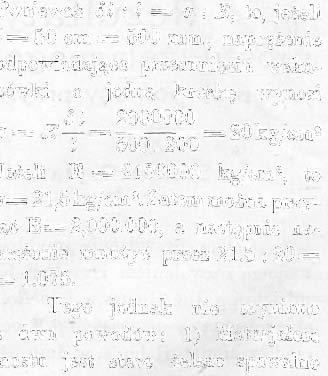 Ponieważ δl : l = σ : E, to, jeżeli
l = 50 cm = 500 mm., naprężenie
odpowiadające przesunięciu wska-
zówki o jedną kreskę wynosi
= E δl / l = 2000000 / 500. 200 = 20 kg/cm²
Jeżeli E = 2150000 kg/cm², to
= 21,5 kg/cm². Zatem można przy-
jąć E = 2,000.000, a następnie na-
prężenie mnożyć przez 21.5 : 20 =
= 1.075.
Tego jednak nie czyniono
z dwu powodów: 1)
mostu jest stare żelazo spawalne